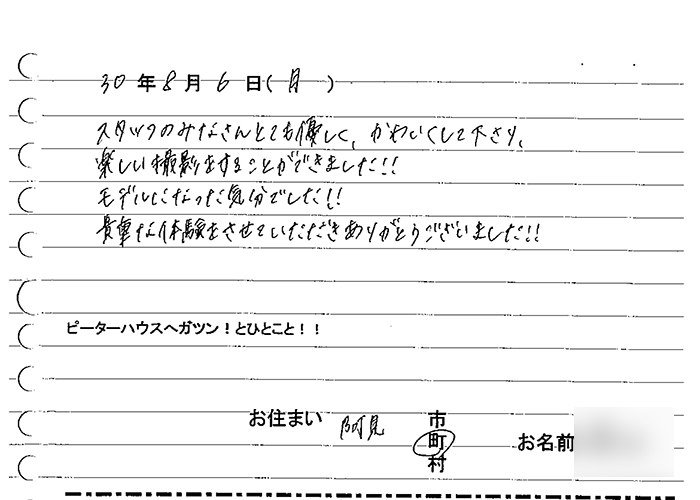 30年8月6日(月)
スタッフのみなさんとても優しく、かわいくして下さり、
楽しい撮影をすることができました!!
モデルになった気分でした!!
貴重な体験をさせていただきありがとうございました!!
ピーターハウスへガツン!とひとこと!!
お住まい 阿見 市
町
村
お名前